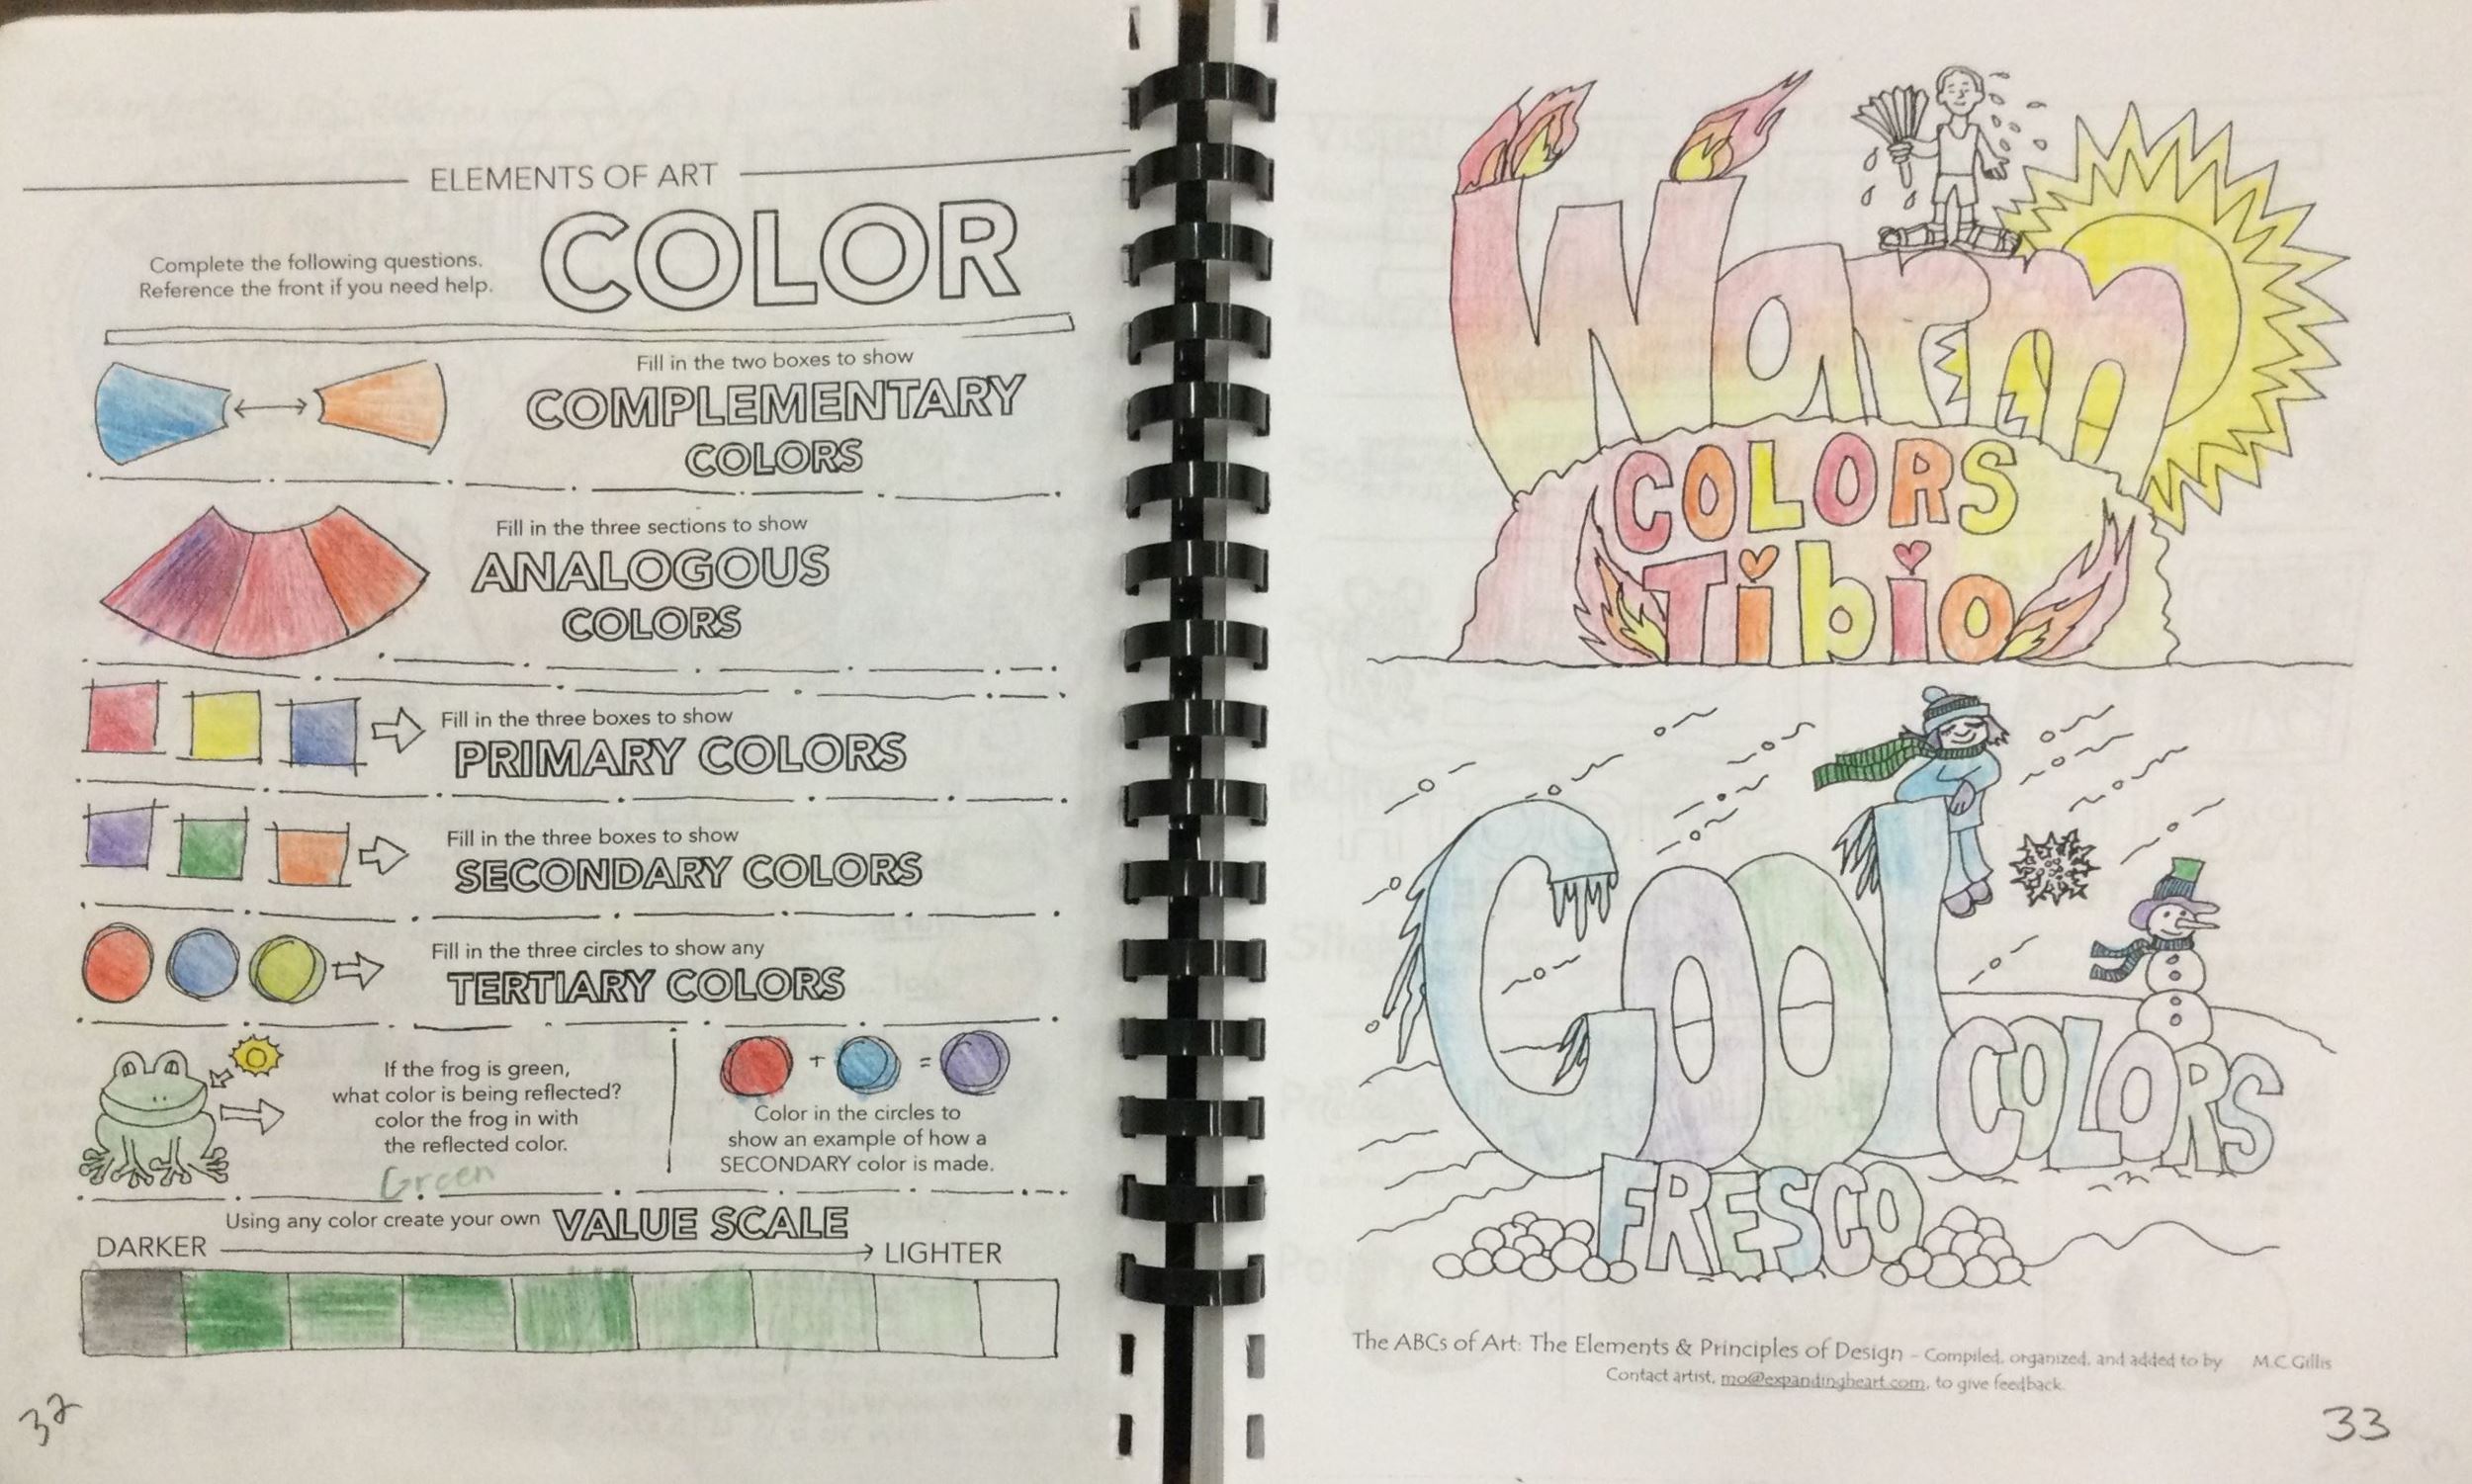 ELEMENTS OF ART
COLOR
Complete the following questions.
Reference the front if you need help.
Fill in the two boxes to show
COMPLEMENTARY
COLORS
Fill in the three sections to show
ANALOGOUS
COLORS
Fill in the three boxes to show
PRIMARY COLORS
Fill in the three boxes to show
SECONDARY COLORS
Fill in the three circles to show any
TERTIARY COLORS
If the frog is green,
what color is being reflected?
color the frog in with
the reflected color.
Green
+ =
Color in the circles to
show an example of how a
SECONDARY color is made.
Using any color create your own VALUE SCALE
DARKER LIGHTER
32
Warm
COLORS
Tibio
Cool
COLORS
FRESCO
The ABCs of Art: The Elements & Principles of Design - Compiled, organized, and added to by M.C.Gillis
Contact artist, mo@expandingheart.com, to give feedback.
33